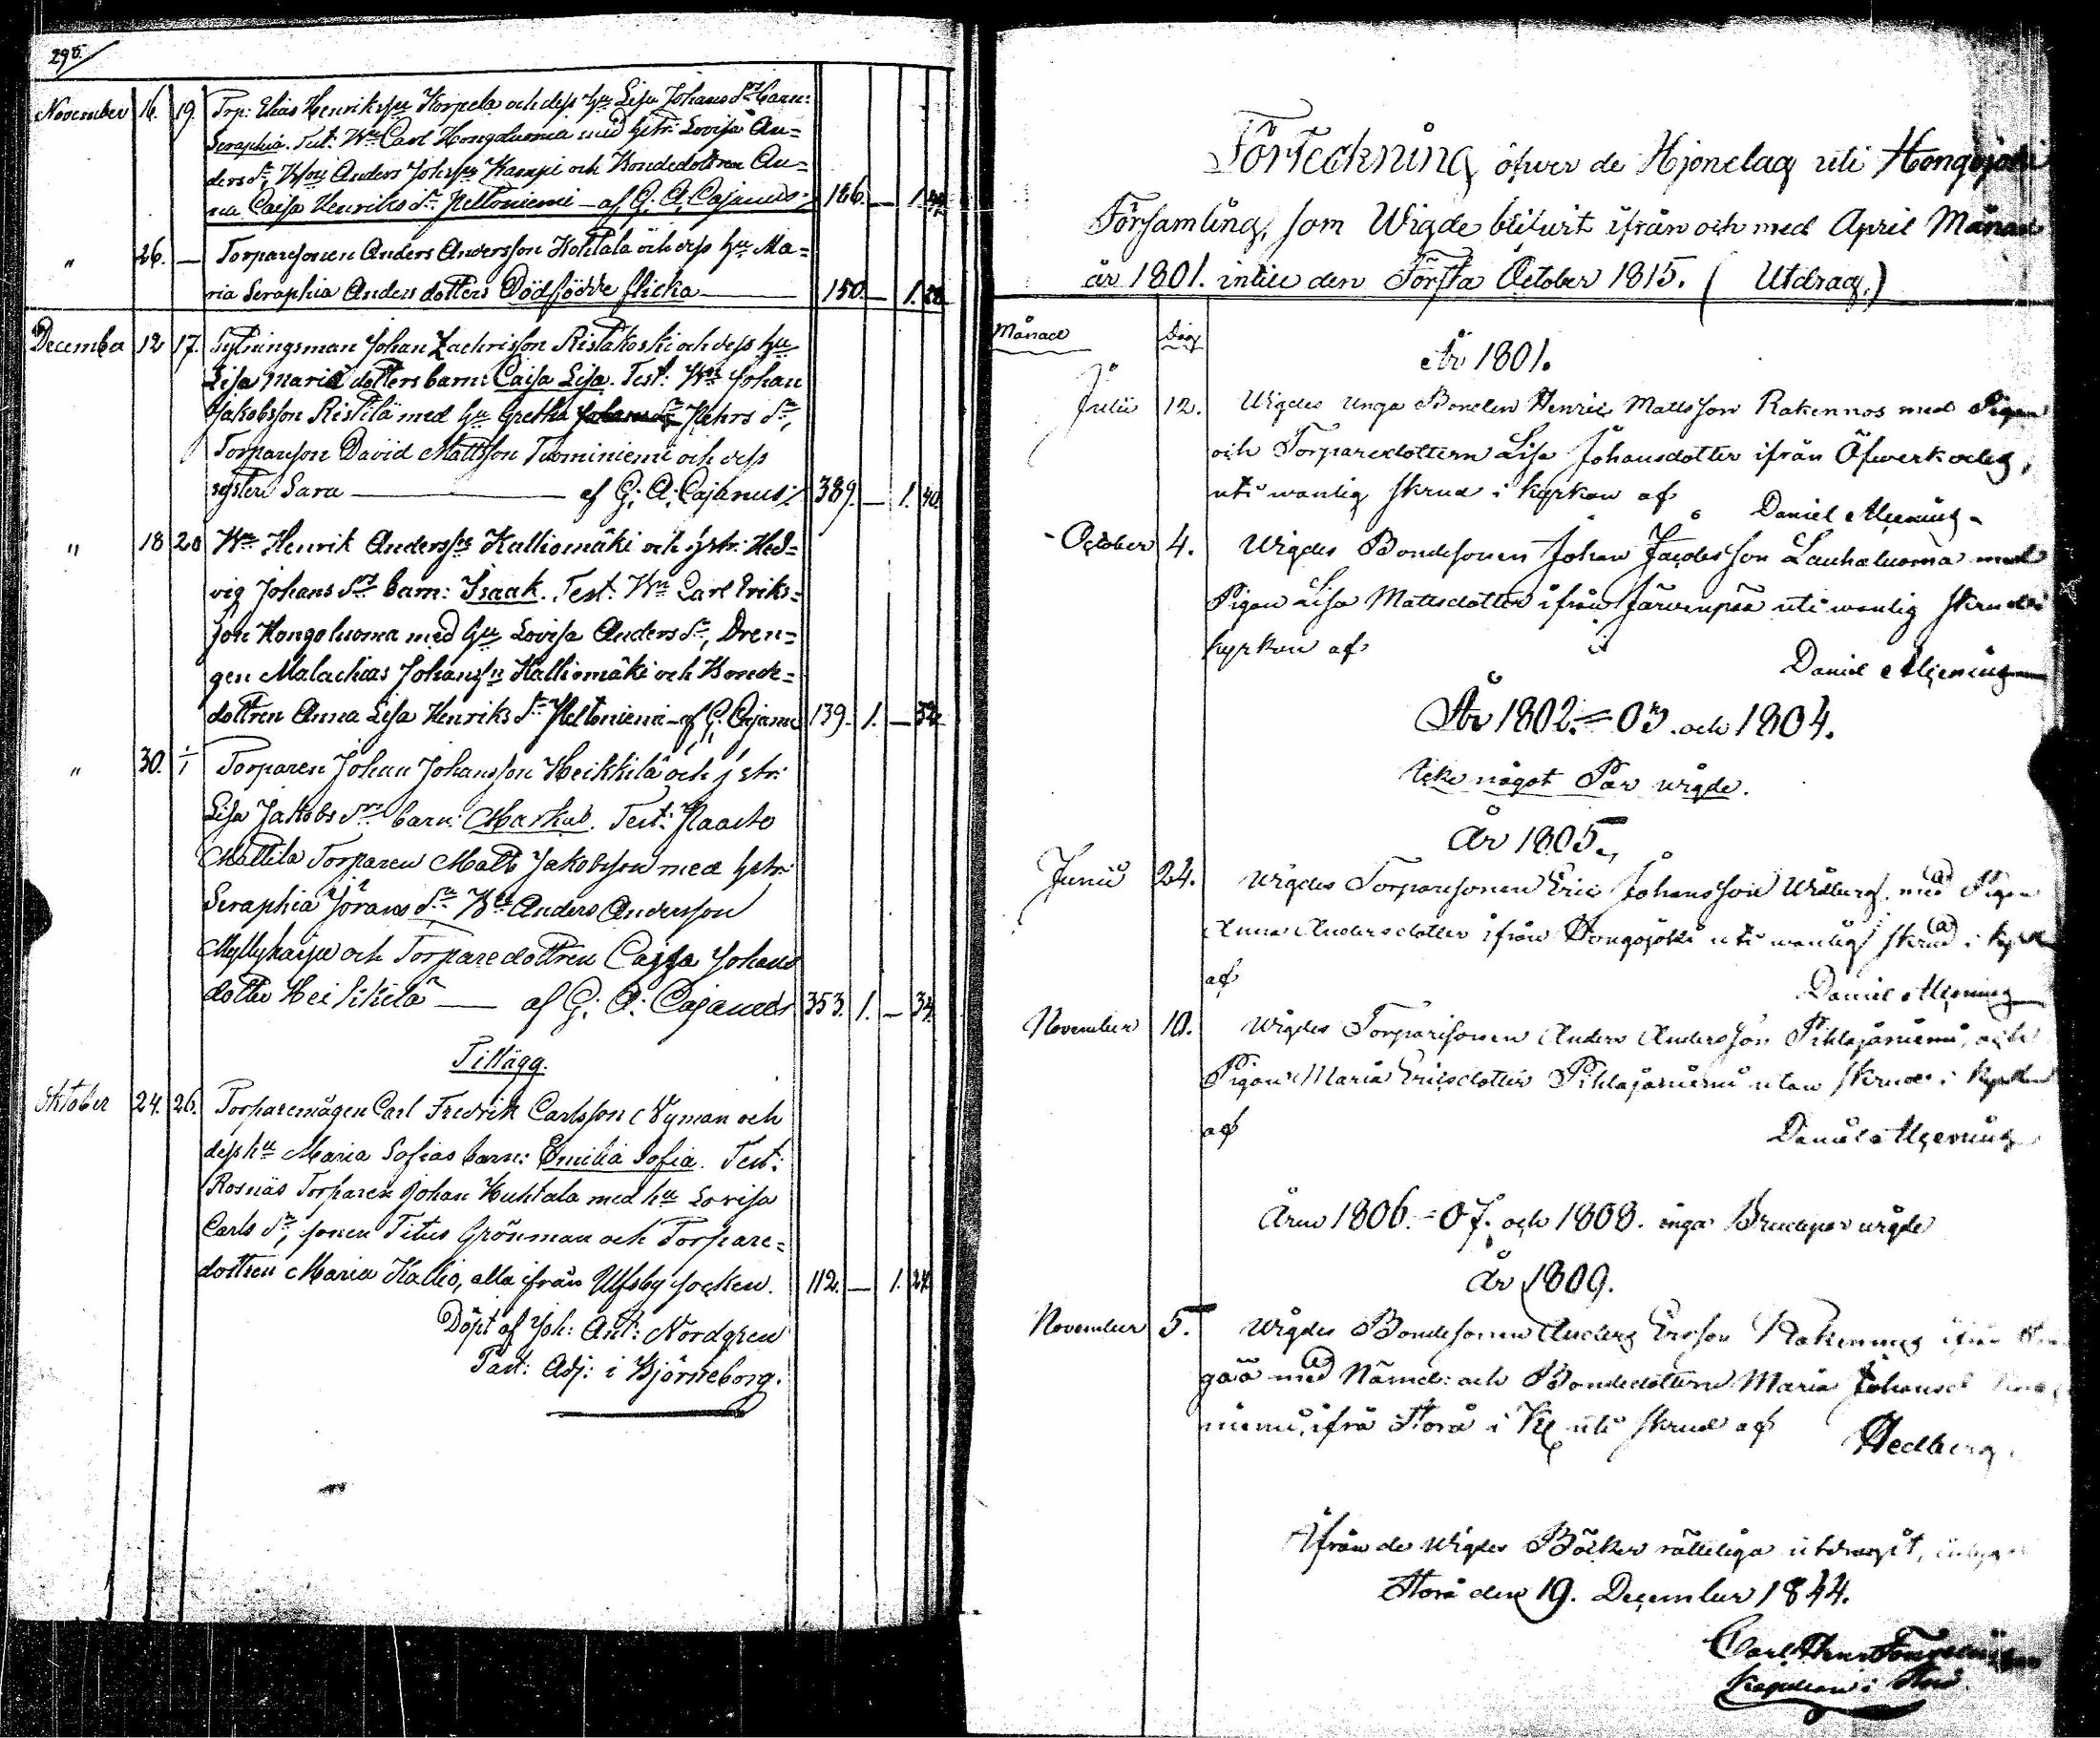 295.
November 16. 19. Trp: Elias Henrikssn Korpela och dess hu Lisa Johans Drs barn:
Seraphia. Test: Bn Carl Hongoluoma med hstr: Lovisa An=
ders Dr, Bson Anders Johansn Kamppi och Bondedottren An=
na Caisa Henriks Dr Peltoniemi — af G. A. Cajanus 186. — 1.
" 26. — Torparesonen Anders Andersson Kohtala och dess hu Ma=
ria Seraphia Anders dotters Dödfödde flicka — 150. — 1. 28.
December 12 17. Sytningsman Johan Zachrisson Ristakoski och dess hu
Lisa Maria dotters barn: Caisa Lisa. Test: Bn Johan
Jakobsson Ristilä med hu Gretha Johans Dr Pehrs Dr,
Torpareson David Mattsson Tuominiemi och dess
syster Sara — af G: A: Cajanus 389. — 1. 40.
" 18 20 Bn Henrik Anderssns Kalliomäki och hstr: Hed=
vig Johans Drs barn: Isaak. Test: Bn Carl Eriks=
son Hongoluoma med hu Lovisa Anders Dr, Dren=
gen Malachias Johanssn Kalliomäki och Bonde=
dottren Anna Lisa Henriks Dr Peltoniemi — af G. Cajanus 139. 1. — 32.
" 30. 1/1 Torparen Johan Johansson Heikkilä och hstr:
Lisa Jakobs Drs barn: Markus. Test: Paasto
Mattila Torparen Matts Jakobsson med hstr:
Seraphia Jörans Dr Bn Anders Andersson
Myllykarju och Torparedottren Cajsa Johans
dotter Heikkilä — af G. A. Cajanus 353. 1. — 34.
Tillägg.
Oktober 24. 26. Torparemågen Carl Fredrik Carlsson Nyman och
dess hu Maria Sofias barn: Emilia Sofia. Test:
Rosnäs Torparen Johan Huhtala med hu Lovisa
Carls Dr, sonen Titus Grönman och Torpare=
dottren Maria Kallio, alla ifrån Ulfsby socken. 112. — 1. 24.
Döpt af Joh: Ant: Nordgren
Past: Adj: i Björneborg.
Förteckning öfver de Hjonelag uti Hongojoki
Församling, som Wigde blifvit ifrån och med April Månad
år 1801. intill den Första October 1815. ( Utdrag.)
Månad Dag
År 1801.
Julii 12. Wigdes unga Bonden Henric Mattsson Rakennos med Pigan
och Torparedottern Lisa Johansdotter ifrån Öfwerkodeg,
uti wanlig skrud i kyrkan af Daniel Hjerning
October 4. Wigdes Bondesonen Johan Jacobsson Lauhaluoma med
Pigan Lisa Mattsdotter ifrån Järvenpää uti wanlig skrud i
kyrkan af
Daniel Hjerning
År 1802.=03. och 1804.
Icke något Par wigde.
År 1805.
Junii 24. Wigdes Torparesonen Eric Johansson Widberg med Pigan
Anna Andersdotter ifrån Hongojoki uti wanlig skrud i kyrkan
af
Daniel Hjerning
November 10. Wigdes Torparesonen Anders Andersson Pihlajaniemi, och
Pigan Maria Ericsdotter Pihlajaniemi utan skrud i kyrkan
af
Daniel Hjerning
Åren 1806.=07. och 1808. inga Brudepar wigde
År 1809.
November 5. Wigdes Bondesonen Anders Ersson Rakennus ifrån
gåå med Nämd: och Bondedottern Maria Johansd
niemi, ifrå Storå i Kk uti skrud af Hedberg.
Ifrån de Wigdes Böcker rätteligen utdragit,
Storå den 19. December 1844.
Carl Henr
Kapellan i Storå.